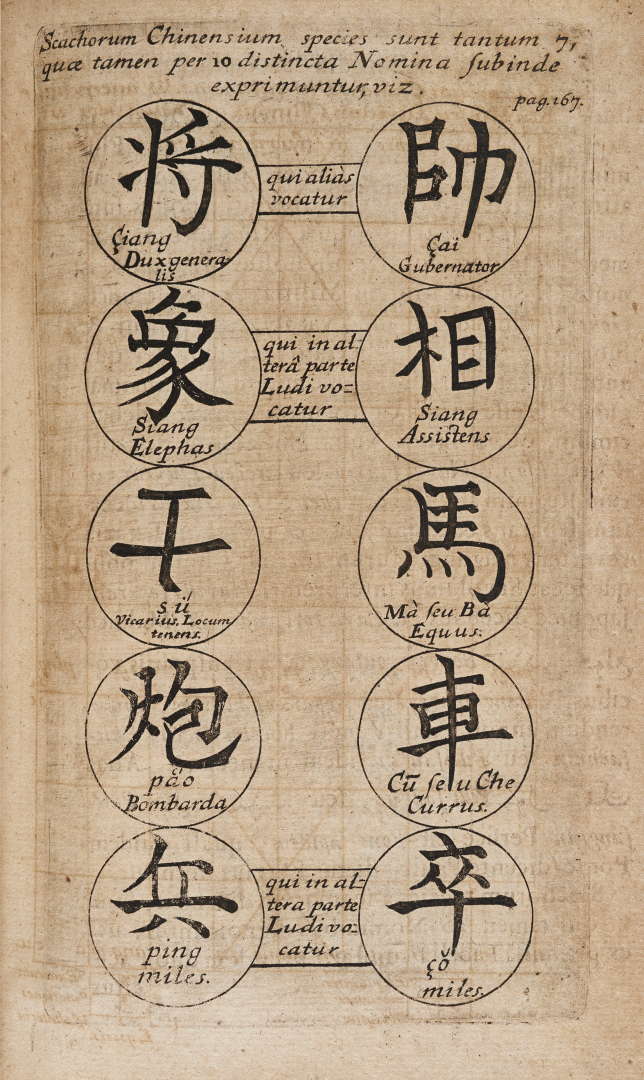 Scachorum Chinensium species sunt tantum 7,
quæ tamen per 10 distincta Nomina ſubinde
exprimuntur, viz.
pag. 167.
将
Çiang
Dux genera-
lis
qui aliàs
vocatur
帥
Çai
Gubernator
象
Siang
Elephas
qui in al=
terâ parte
Ludi vo=
catur
相
Siang
Assistens
干
sú
Vicarius, Locum
tenens.
馬
Mà ſeu Bà
Equus:
炮
pao
Bombarda
車
Cū ſeu Che
Currus.
兵
ping
miles.
qui in al=
tera parte
Ludi vo=
catur
卒
çŏ
miles.